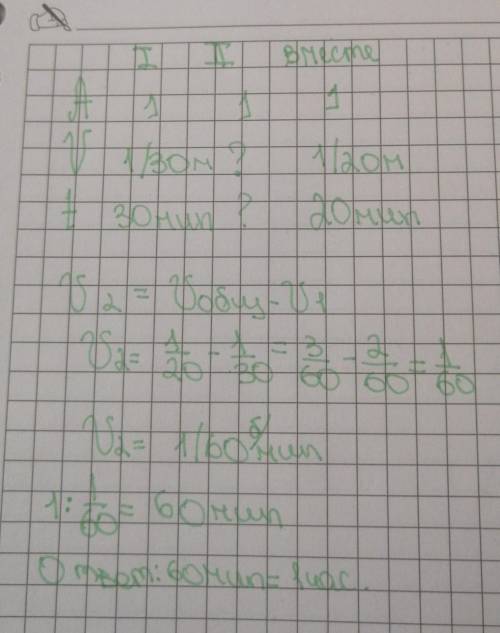 I II вместе
A 1 1 1
V 1/30м ? 1/20м
t 30мин ? 20мин
V2 = Vобщ - V1
V2 = 1/20 - 1/30 = 3/60 - 2/60 = 1/60
V2 = 1/60 б/мин
1 : 1/60 = 60мин
Ответ: 60мин = 1час.